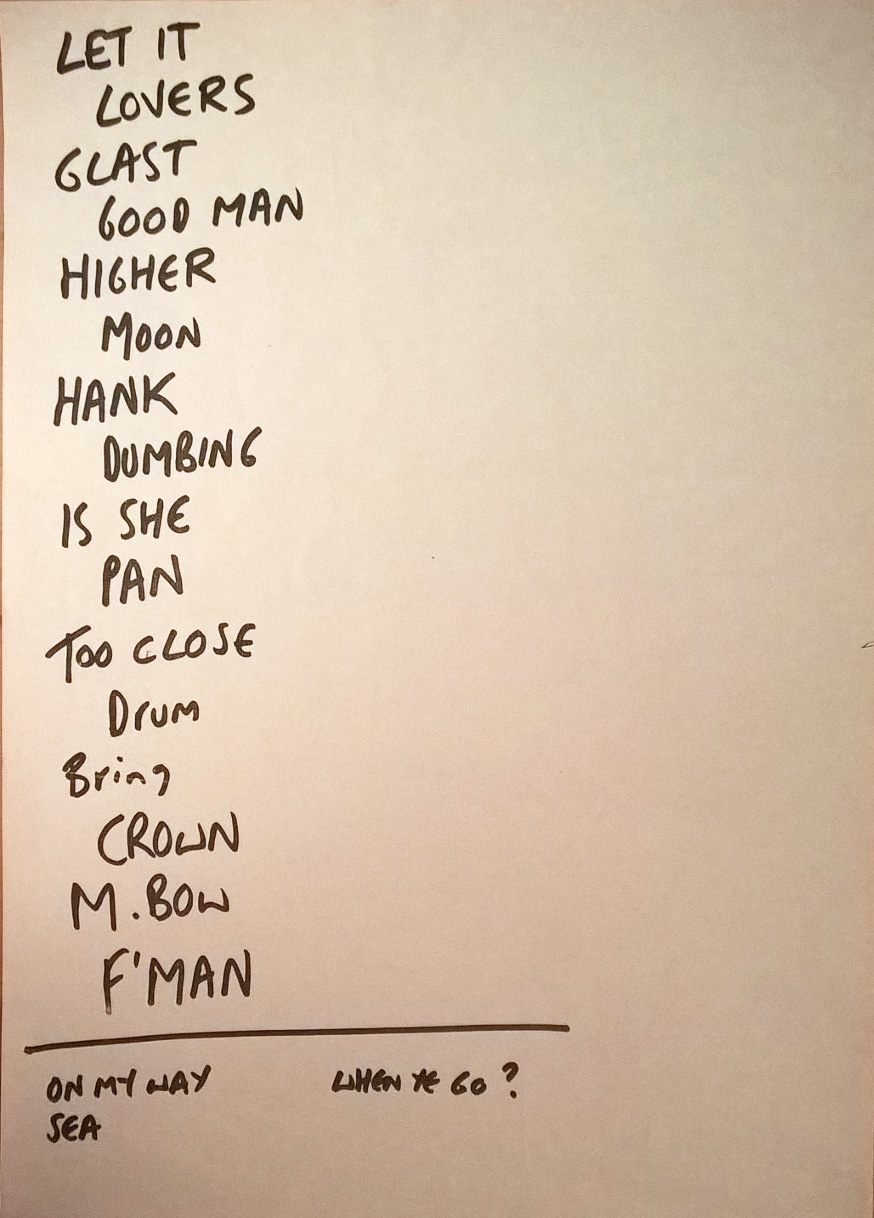 LET IT
LOVERS
GLAST
GOOD MAN
HIGHER
MOON
HANK
DUMBING
IS SHE
PAN
TOO CLOSE
Drum
Bring
CROWN
M.BOW
F'MAN
ON MY WAY WHEN YE GO?
SEA